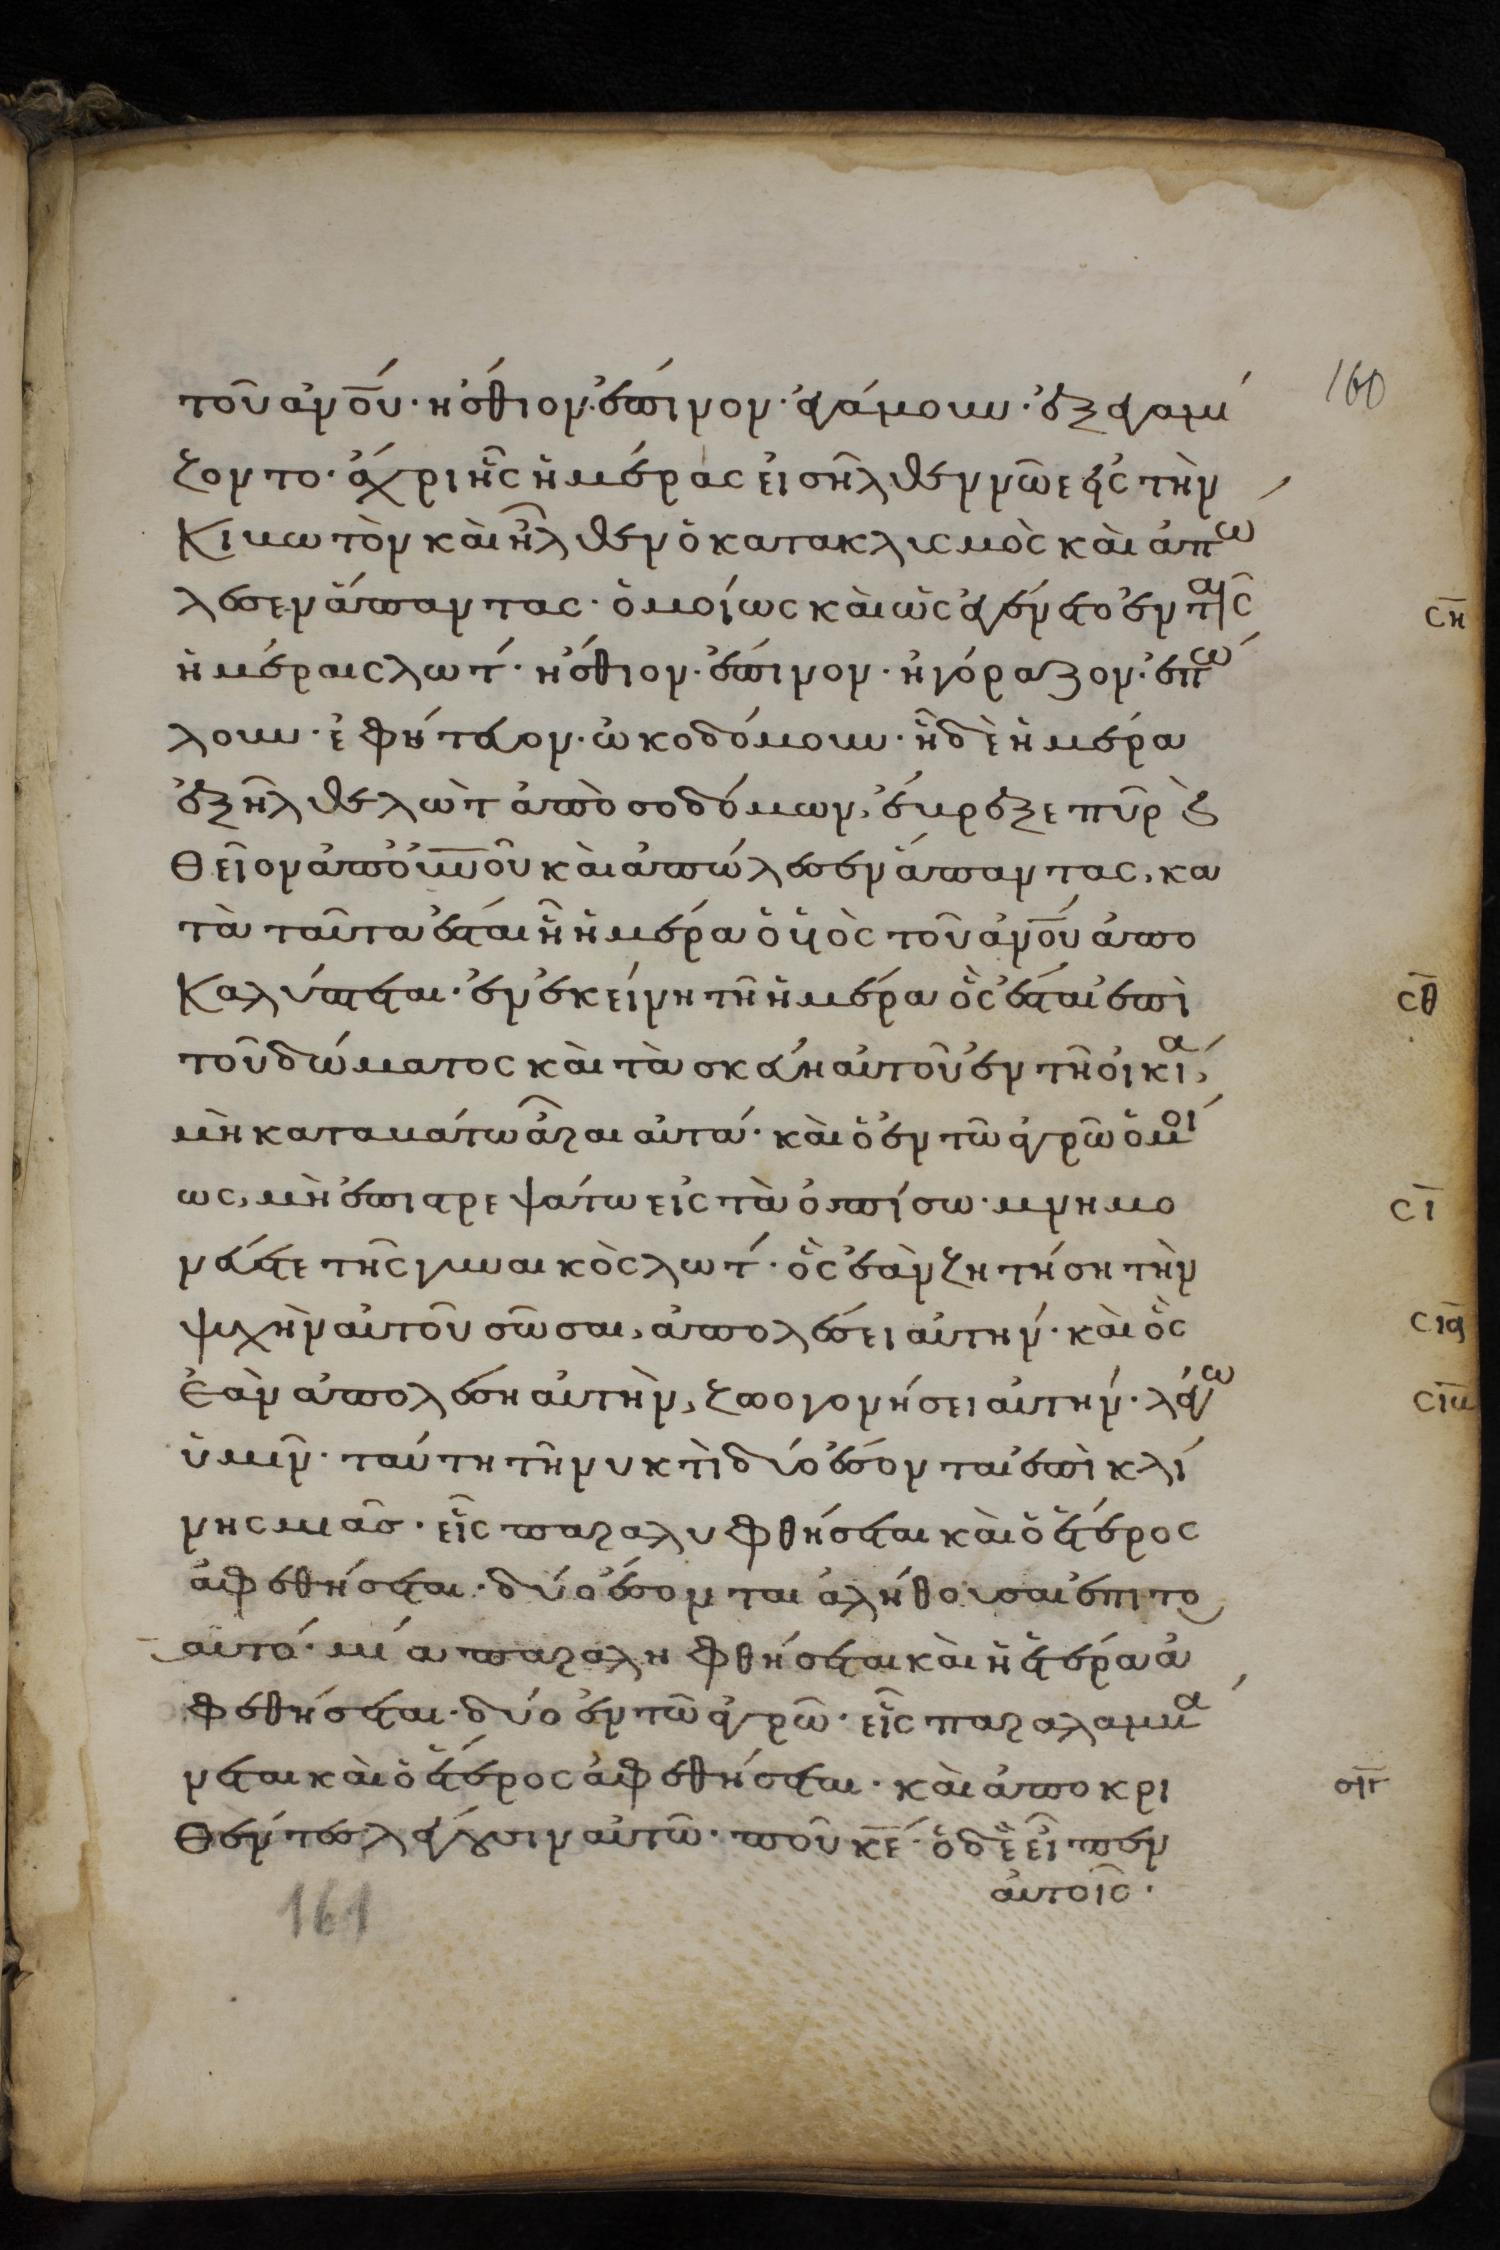 160
τοῦ ἀν̅ο̅υ̅· ἤσθιον· ἔπινον· ἐγάμουν· ἐξεγαμί
ζοντο· ἄχρι ἧς ἡμέρας εἰσῆλθεν νῶε εἰς τὴν
κιβωτὸν καὶ ἦλθεν ὁ κατακλυσμὸς καὶ ἀπώ
λεσεν ἅπαντας· ὁμοίως καὶ ὡς ἐγένετο ἐν ταῖς
ση̅
ἡμέραις λωτ· ἤσθιον· ἔπινον· ἠγόραζον· ἐπώ
λουν· ἐφύτευον· ὠκοδόμουν· ἧ δὲ ἡμέρα
ἐξῆλθε λὼτ ἀπὸ σοδόμων, ἔβρεξε πῦρ ϗ
θεῖον ἀπὸ ο̅υ̅ν̅ο̅υ̅ καὶ ἀπώλεσεν ἅπαντας, κα
τὰ ταῦτα ἔσται ἧ ἡμέρα ὁ υἱὸς τοῦ ἀν̅ο̅υ̅ ἀπο
καλύπτεται· ἐν ἐκείνη τῆ ἡμέρα ὃς ἔσται ἐπὶ
σθ̅
τοῦ δώματος καὶ τὰ σκεύη αὐτοῦ ἐν τῆ οἰκία,
μὴ καταβάτω ἆραι αὐτά· καὶ ὁ ἐν τῶ ἀγρῶ ὁμοί
ως, μὴ ἐπιστρεψάτω εἰς τὰ ὀπίσω· μνημο
σι̅
νεύετε τῆς γυναικὸς λωτ· ὃς ἐὰν ζητήση τὴν
ψυχὴν αὐτοῦ σῶσαι, ἀπολέσει αὐτήν· καὶ ὃς
σια̅
ἐὰν ἀπολέση αὐτὴν, ζωογονήσει αὐτήν· λέγω
σιβ̅
ὑμῖν· ταύτη τῆ νυκτὶ δύο ἔσονται ἐπὶ κλί
νης μιᾶς· εἷς παραλυφθήσεται καὶ ὁ ἕτερος
ἀφεθήσεται· δύο ἔσονται ἀλήθουσαι ἐπι το
αυτό· μία παραληφθήσεται καὶ ἡ ἑτέρα ἀ
φεθήσεται· δύο ἐν τῶ ἀγρῶ· εἷς παραλαμβά
νεται καὶ ὁ ἕτερος ἀφεθήσεται· καὶ ἀποκρι
σιγ̅
θέντες λέγουσιν αὐτῶ· ποῦ κ̅ε̅· ὁ δὲ εἶπεν
αὐτοῖς·
161